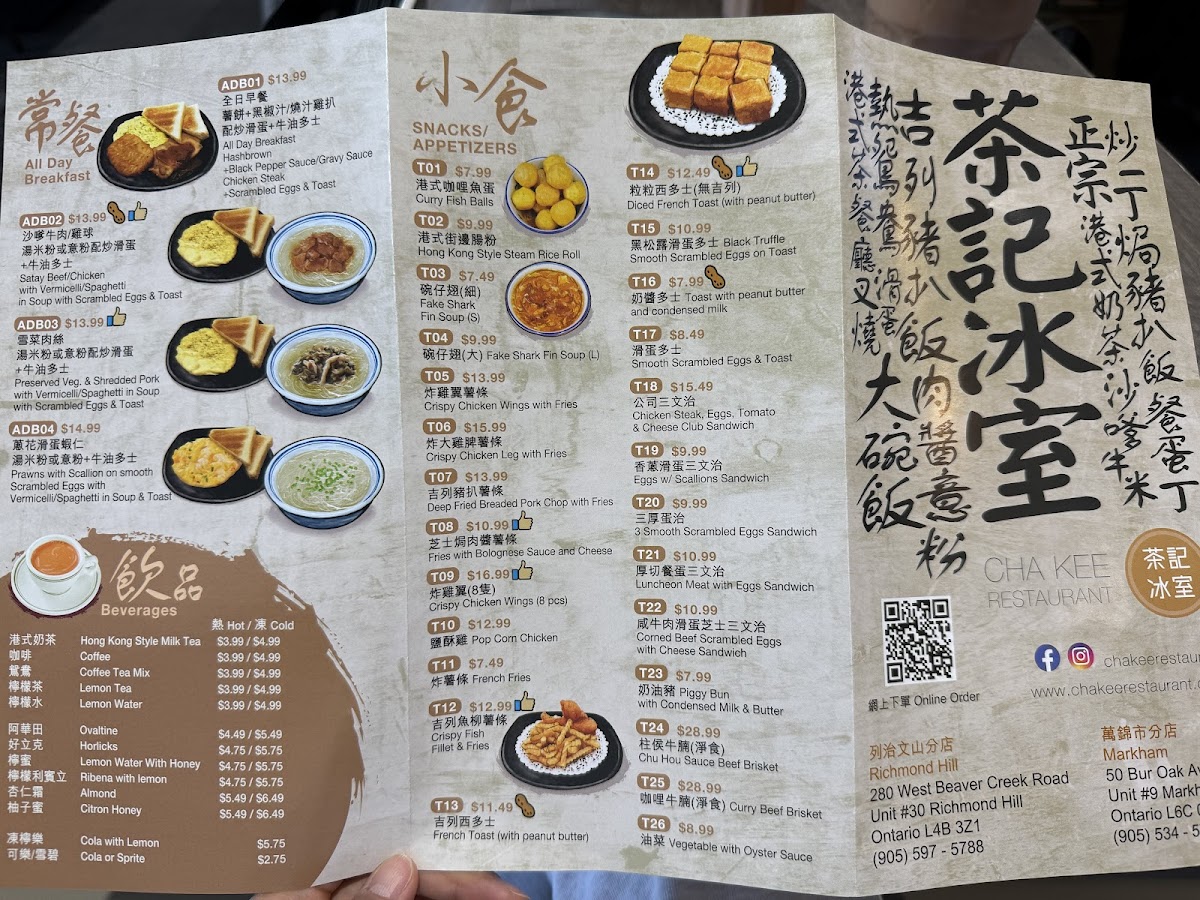 常餐
All Day
Breakfast
ADB01 $13.99
全日早餐
薯餅+黑椒汁/燒汁雞扒
配炒滑蛋+牛油多士
All Day Breakfast
Hashbrown
+Black Pepper Sauce/Gravy Sauce
Chicken Steak
+Scrambled Eggs & Toast
ADB02 $13.99
沙嗲牛肉/雞球
湯米粉或意粉配炒滑蛋
+牛油多士
Satay Beef/Chicken
with Vermicelli/Spaghetti
in Soup with Scrambled Eggs & Toast
ADB03 $13.99
雪菜肉絲
湯米粉或意粉配炒滑蛋
+牛油多士
Preserved Veg. & Shredded Pork
with Vermicelli/Spaghetti in Soup
with Scrambled Eggs & Toast
ADB04 $14.99
蔥花滑蛋蝦仁
湯米粉或意粉+牛油多士
Prawns with Scallion on smooth
Scrambled Eggs with
Vermicelli/Spaghetti in Soup & Toast
飲品
Beverages
熱 Hot / 凍 Cold
港式奶茶 Hong Kong Style Milk Tea $3.99 / $4.99
咖啡 Coffee $3.99 / $4.99
鴛鴦 Coffee Tea Mix $3.99 / $4.99
檸檬茶 Lemon Tea $3.99 / $4.99
檸檬水 Lemon Water $3.99 / $4.99
阿華田 Ovaltine $4.49 / $5.49
好立克 Horlicks $4.75 / $5.75
檸蜜 Lemon Water With Honey $4.75 / $5.75
檸檬利賓立 Ribena with lemon $4.75 / $5.75
杏仁霜 Almond $5.49 / $6.49
柚子蜜 Citron Honey $5.49 / $6.49
凍檸樂 Cola with Lemon $5.75
可樂/雪碧 Cola or Sprite $2.75
小食
SNACKS/
APPETIZERS
T01 $7.99
港式咖哩魚蛋
Curry Fish Balls
T02 $9.99
港式街邊腸粉
Hong Kong Style Steam Rice Roll
T03 $7.49
碗仔翅(細)
Fake Shark
Fin Soup (S)
T04 $9.99
碗仔翅(大) Fake Shark Fin Soup (L)
T05 $13.99
炸雞翼薯條
Crispy Chicken Wings with Fries
T06 $15.99
炸大雞脾薯條
Crispy Chicken Leg with Fries
T07 $13.99
吉列豬扒薯條
Deep Fried Breaded Pork Chop with Fries
T08 $10.99
芝士焗肉醬薯條
Fries with Bolognese Sauce and Cheese
T09 $16.99
炸雞翼(8隻)
Crispy Chicken Wings (8 pcs)
T10 $12.99
鹽酥雞 Pop Corn Chicken
T11 $7.49
炸薯條 French Fries
T12 $12.99
吉列魚柳薯條
Crispy Fish
Fillet & Fries
T13 $11.49
吉列西多士
French Toast (with peanut butter)
T14 $12.49
粒粒西多士(無吉列)
Diced French Toast (with peanut butter)
T15 $10.99
黑松露滑蛋多士 Black Truffle
Smooth Scrambled Eggs on Toast
T16 $7.99
奶醬多士 Toast with peanut butter
and condensed milk
T17 $8.49
滑蛋多士
Smooth Scrambled Eggs & Toast
T18 $15.49
公司三文治
Chicken Steak, Eggs, Tomato
& Cheese Club Sandwich
T19 $9.99
香蔥滑蛋三文治
Eggs w/ Scallions Sandwich
T20 $9.99
三厚蛋治
3 Smooth Scrambled Eggs Sandwich
T21 $10.99
厚切餐蛋三文治
Luncheon Meat with Eggs Sandwich
T22 $10.99
咸牛肉滑蛋芝士三文治
Corned Beef Scrambled Eggs
with Cheese Sandwich
T23 $7.99
奶油豬 Piggy Bun
with Condensed Milk & Butter
T24 $28.99
柱侯牛腩(淨食)
Chu Hou Sauce Beef Brisket
T25 $28.99
咖哩牛腩(淨食) Curry Beef Brisket
T26 $8.99
油菜 Vegetable with Oyster Sauce
炒丁焗豬扒飯餐蛋丁
正宗港式奶茶沙嗲牛米
茶記冰室
吉列豬扒飯肉醬意粉
熱鴛鴦滑蛋大碗飯
港式茶餐廳叉燒
CHA KEE
RESTAURANT
茶記
冰室
網上下單 Online Order
chakeerestau
www.chakeerestaurant.
列治文山分店
Richmond Hill
280 West Beaver Creek Road
Unit #30 Richmond Hill
Ontario L4B 3Z1
(905) 597 - 5788
萬錦市分店
Markham
50 Bur Oak Av
Unit #9 Markh
Ontario L6C
(905) 534 - 5